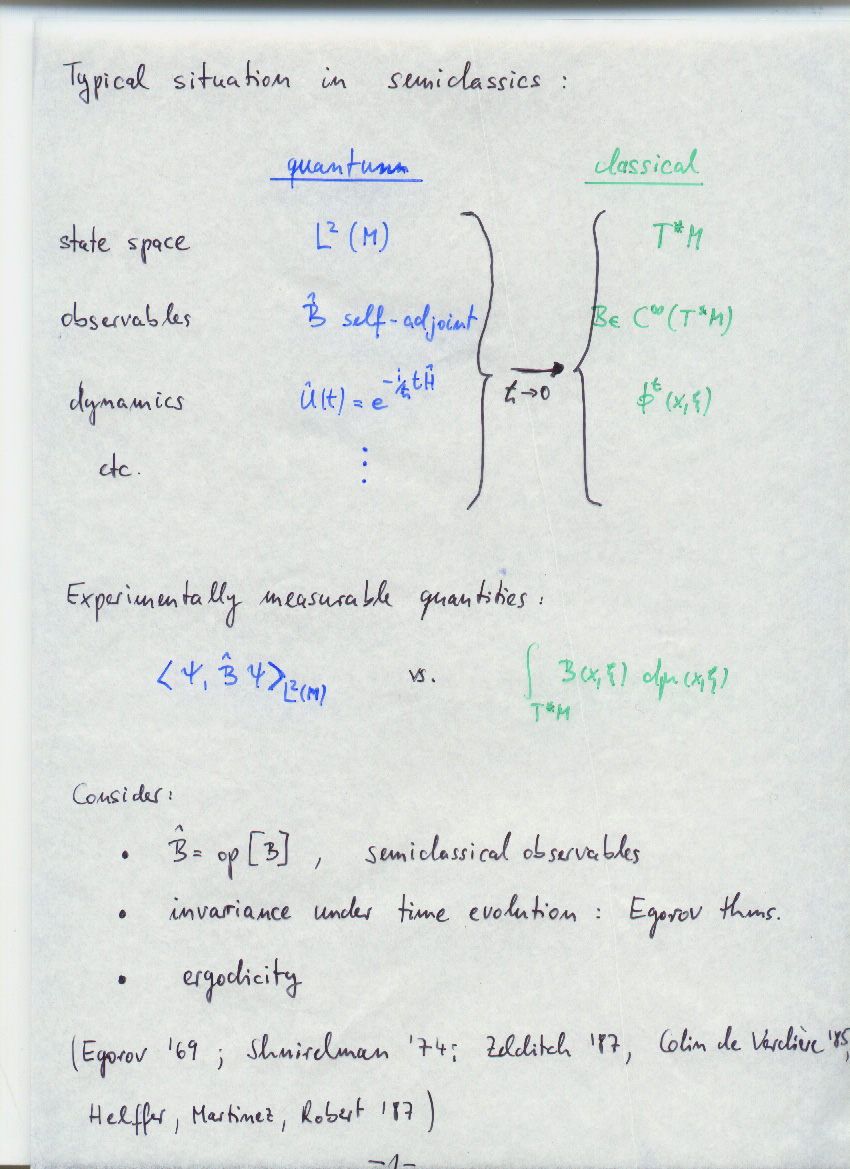 Typical situation in semiclassics :
quantum classical
state space L² (M) T*M
observables B̂ self-adjoint B∈ C^∞(T*M)
dynamics Û(t) = e^{-i/ħ tĤ} ħ→0 ϕ^t (x,ξ)
etc. ⋮
Experimentally measurable quantities :
⟨ψ, B̂ ψ⟩_{L²(M)} vs. ∫_{T*M} B(x,ξ) dμ(x,ξ)
Consider :
• B̂ = op [B] , semiclassical observables
• invariance under time evolution : Egorov thms.
• ergodicity
(Egorov '69 ; Shnirelman '74; Zelditch '87, Colin de Verdière '85,
Helffer, Martinez, Robert '87 )
-1-